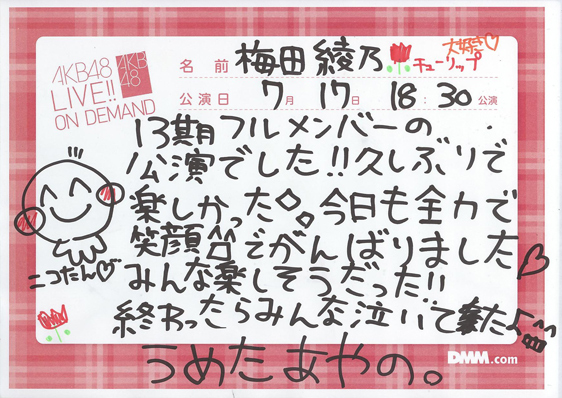 AKB48
LIVE!!
ON DEMAND
AKB
48
名前 梅田綾乃 チューリップ
大好き♡
公演日 7月17日 18:30公演
13期フルメンバーの
公演でした!!久しぶりで
楽しかった◇。今日も全力で
笑顔でがんばりました♡
みんな楽しそうだった!!
終わったらみんな泣いてたよ
ニコたん♡
うめたあやの。
DMM.com